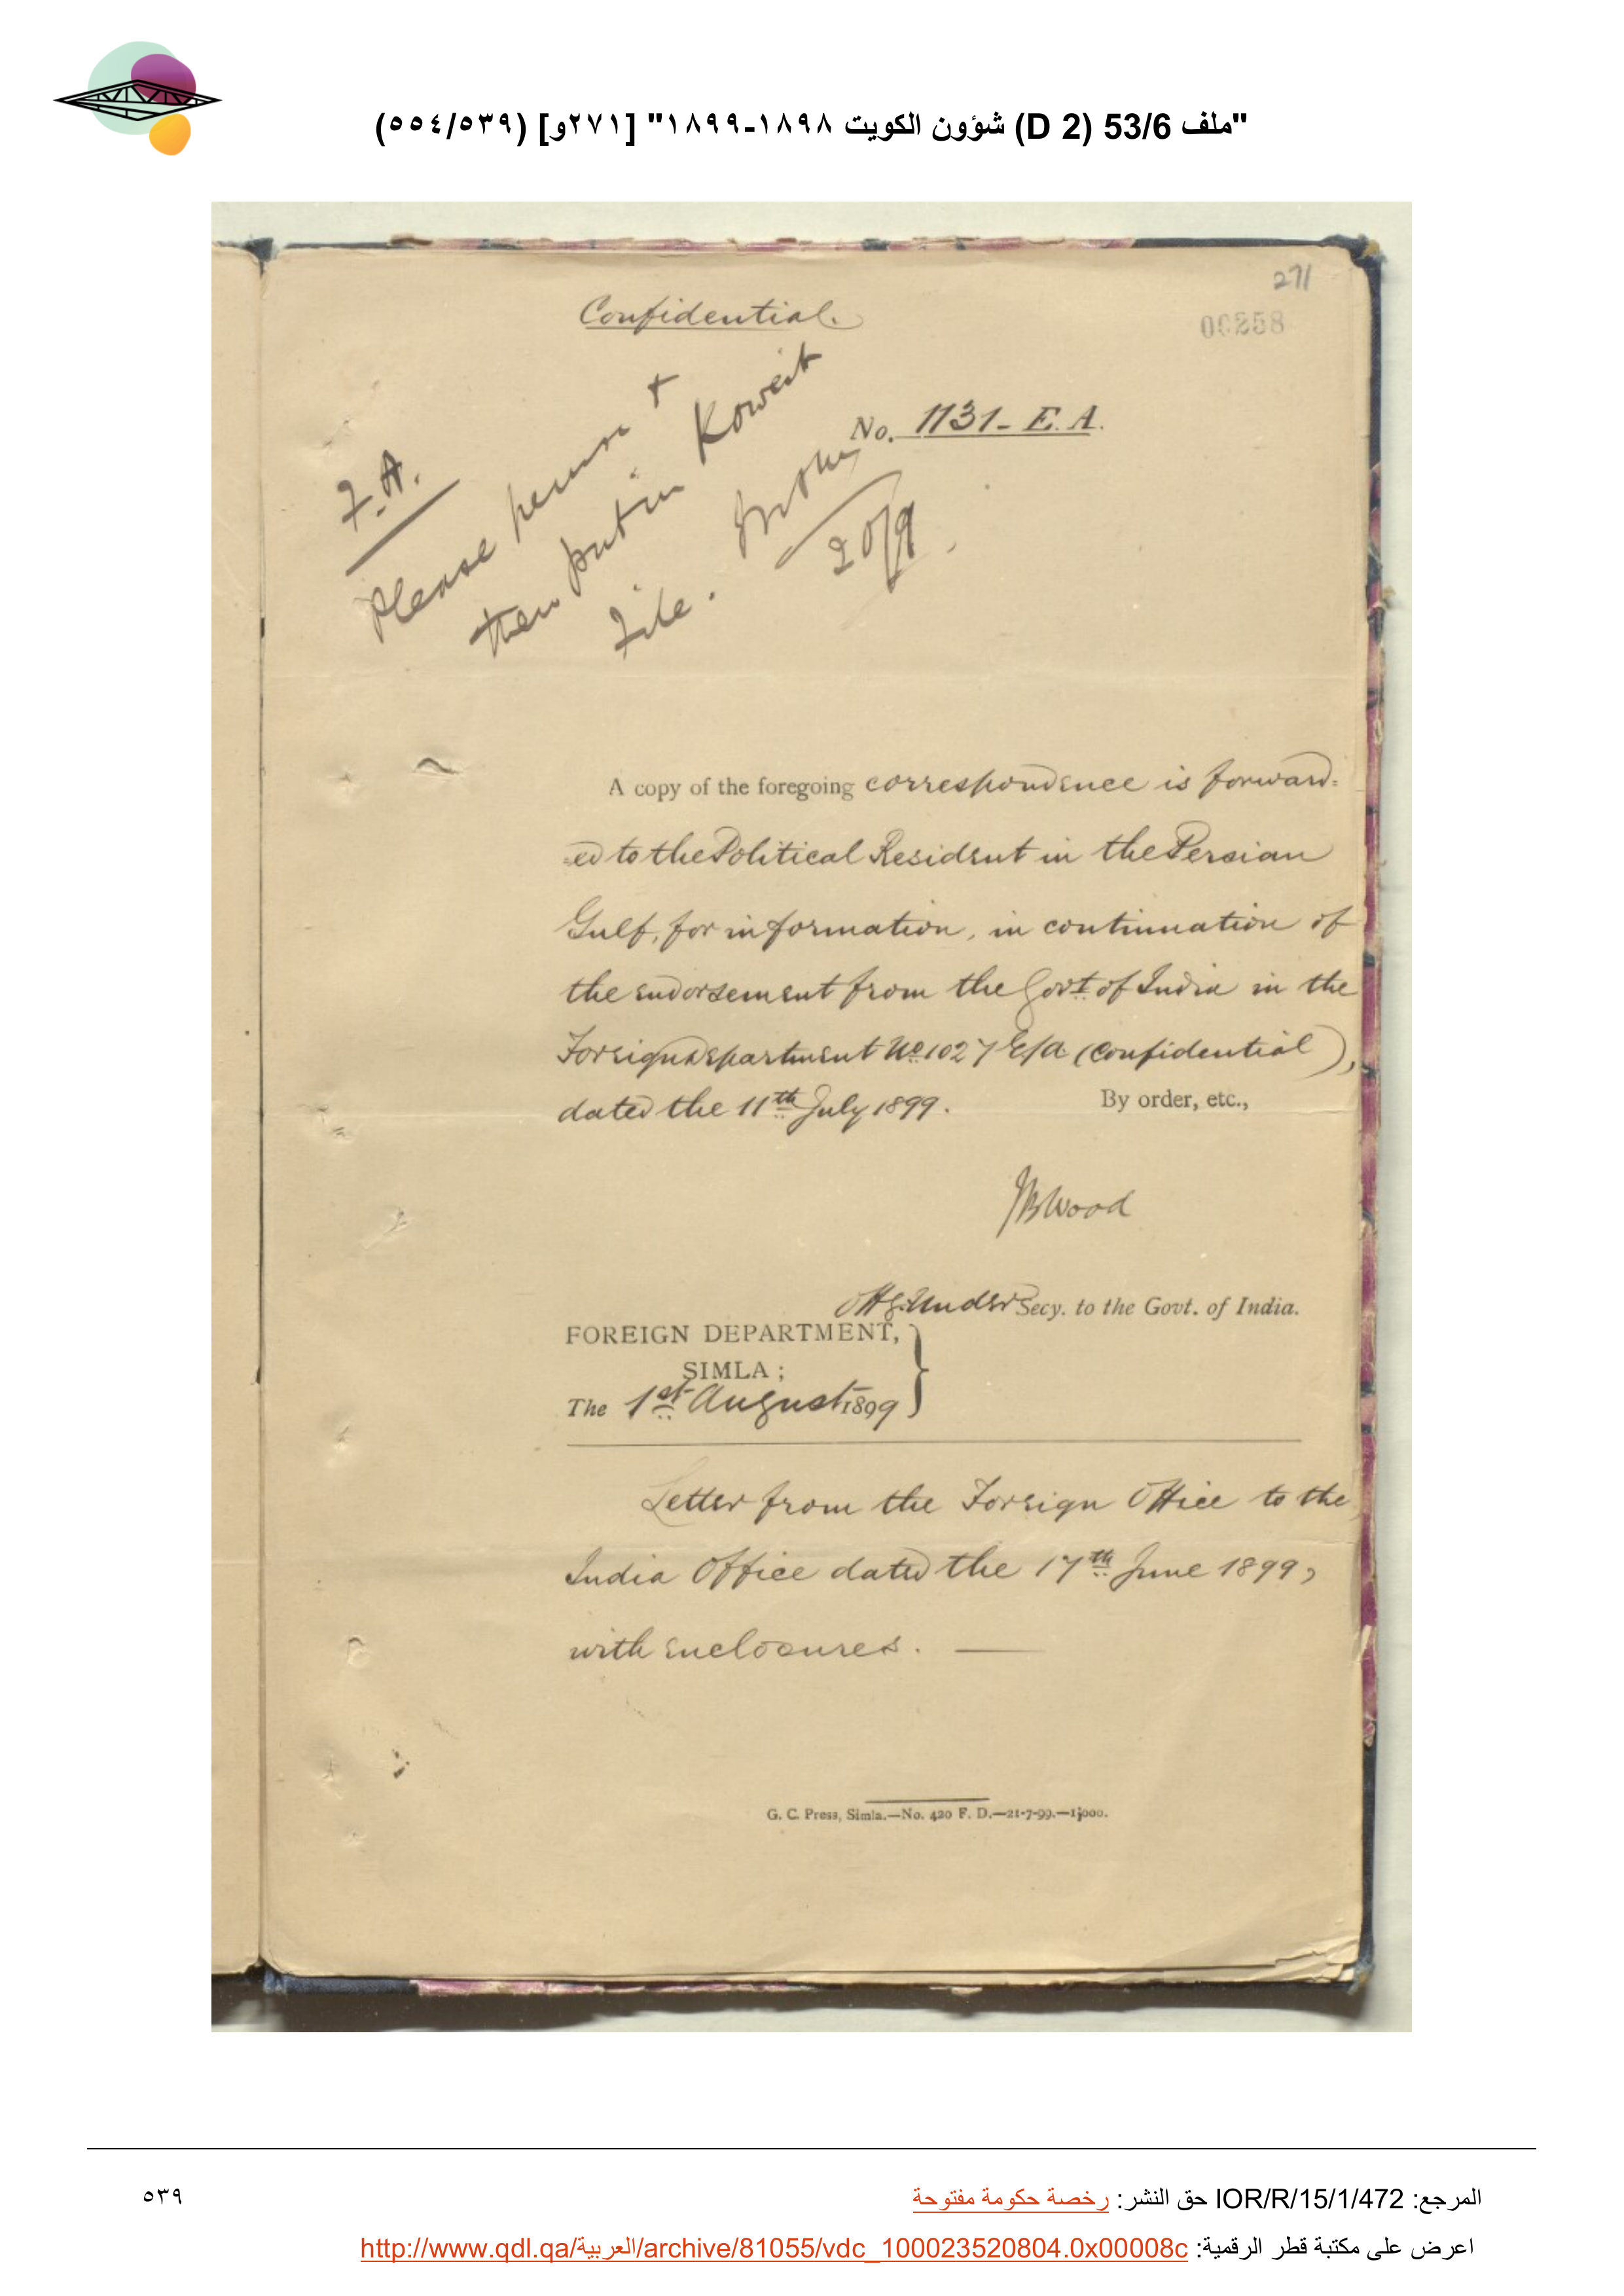 "ملف 53/6 (D 2) شؤون الكويت ١٨٩٨-١٨٩٩" [٢٧١و] (٥٣٩/٥٥٤)
271
Confidential.
00258
No. 1131- E. A.
F. A.
Please peruse +
then put in Koweit
File.
20/9.
A copy of the foregoing correspondence is forward=
=ed to the Political Resident in the Persian
Gulf, for information, in continuation of
the endorsement from the Govt. of India in the
Foreign Department No. 1027 E/A (Confidential),
dated the 11th July 1899.
By order, etc.,
JB Wood
Offg. Under Secy. to the Govt. of India.
FOREIGN DEPARTMENT,
SIMLA;
The 1st August 1899
Letter from the Foreign Office to the
India Office dated the 17th June 1899,
with enclosures. —
G. C. Press, Simla.—No. 420 F. D.—21-7-99.—1,000.
المرجع: IOR/R/15/1/472 حق النشر: رخصة حكومة مفتوحة
٥٣٩
اعرض على مكتبة قطر الرقمية: http://www.qdl.qa/العربية/archive/81055/vdc_100023520804.0x00008c